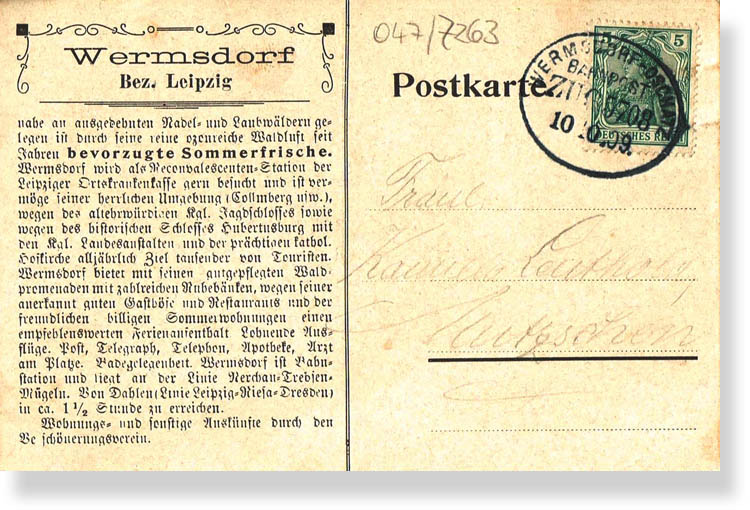 Wermsdorf
Bez. Leipzig
nahe an ausgedehnten Nadel- und Laubwäldern ge-
legen ist durch seine reine ozonreiche Waldluft seit
Jahren bevorzugte Sommerfrische.
Wermsdorf wird als Reconvalescenten-Station der
Leipziger Ortskrankenkasse gern besucht und ist ver-
möge seiner herrlichen Umgebung (Collmberg usw.),
wegen des altehrwürdigen Kgl. Jagdschlosses sowie
wegen des historischen Schlosses Hubertusburg mit
den Kgl. Landesanstalten und der prächtigen kathol.
Hofkirche alljährlich Ziel tausender von Touristen.
Wermsdorf bietet mit seinen gutgepflegten Wald-
promenaden mit zahlreichen Ruhebänken, wegen seiner
anerkannt guten Gasthöfe und Restaurants und der
freundlichen billigen Sommerwohnungen einen
empfehlenswerten Ferienaufenthalt Lohnende Aus-
flüge. Post, Telegraph, Telephon, Apotheke, Arzt
am Platze. Badegelegenheit. Wermsdorf ist Bahn-
station und liegt an der Linie Nerchau-Trebsen-
Mügeln. Von Dahlen (Linie Leipzig-Riesa-Dresden)
in ca. 1 1/2 Stunde zu erreichen.
Wohnungs- und sonstige Auskünfte durch den
Verschönerungsverein.
047/7263
Postkarte
5
DEUTSCHES REICH
WERMSDORF
BAHNPOST
ZUG 3708
10 10.09.
Mutzschen